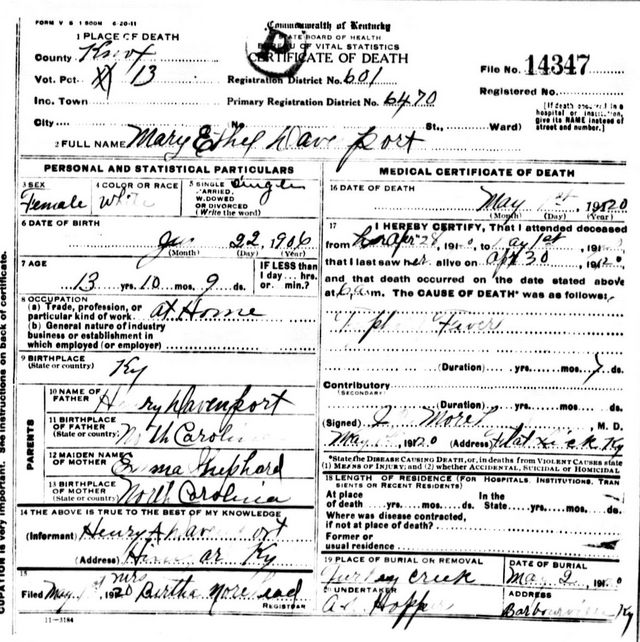 FORM V S 1 500M 6-20-11
Commonwealth of Kentucky
STATE BOARD OF HEALTH
BUREAU OF VITAL STATISTICS
CERTIFICATE OF DEATH
1 PLACE OF DEATH
County Knox
Vot. Pct. 13
Inc. Town
City No. St., Ward)
Registration District No. 601
Primary Registration District No. 6470
File No. 14347
Registered No.
(If death occurred in a hospital or institution, give its NAME instead of street and number.)
2 FULL NAME Mary Ethel Davenport
PERSONAL AND STATISTICAL PARTICULARS
3 SEX
Female
4 COLOR OR RACE
White
5 SINGLE, MARRIED, WIDOWED OR DIVORCED (Write the word)
Single
6 DATE OF BIRTH
22, 1906
(Month) (Day) (Year)
7 AGE
13 yrs. 10 mos. 9 ds.
IF LESS than 1 day... hrs. or min.?
8 OCCUPATION
(a) Trade, profession, or particular kind of work. at Home
(b) General nature of industry business or establishment in which employed (or employer)
9 BIRTHPLACE
(State or country) Ky
PARENTS
10 NAME OF FATHER Henry Davenport
11 BIRTHPLACE OF FATHER
(State or country) North Carolina
12 MAIDEN NAME OF MOTHER Emma Shephard
13 BIRTHPLACE OF MOTHER
(State or country) North Carolina
14 THE ABOVE IS TRUE TO THE BEST OF MY KNOWLEDGE
(Informant) Henry Davenport
(Address) Ky
15
Filed May 1920 Mrs Birtha Morehead
REGISTRAR
11-3184
MEDICAL CERTIFICATE OF DEATH
16 DATE OF DEATH
May 1st, 1920
(Month) (Day) (Year)
17 I HEREBY CERTIFY, That I attended deceased
from Apr 28, 1920, to May 1st, 1920,
that I last saw her alive on Apr 30, 1920,
and that death occurred on the date stated above
at 6 a m. The CAUSE OF DEATH* was as follows:
Fever
(Duration) yrs. mos. 7 ds.
Contributory
(SECONDARY)
(Duration) yrs. mos. ds.
(Signed) M. D.
May 1920 (Address) Flat Lick Ky
*State the DISEASE CAUSING DEATH, or, in deaths from VIOLENT CAUSES state (1) MEANS OF INJURY; and (2) whether ACCIDENTAL, SUICIDAL or HOMICIDAL
18 LENGTH OF RESIDENCE (FOR HOSPITALS, INSTITUTIONS, TRANSIENTS OR RECENT RESIDENTS)
At place of death yrs. mos. ds. In the State yrs. mos. ds.
Where was disease contracted, if not at place of death?
Former or usual residence
19 PLACE OF BURIAL OR REMOVAL
Creek
DATE OF BURIAL
May 2, 1920
20 UNDERTAKER
Hopper
ADDRESS
Barbourville Ky
CUPATION is very important. See instructions on back of certificate.